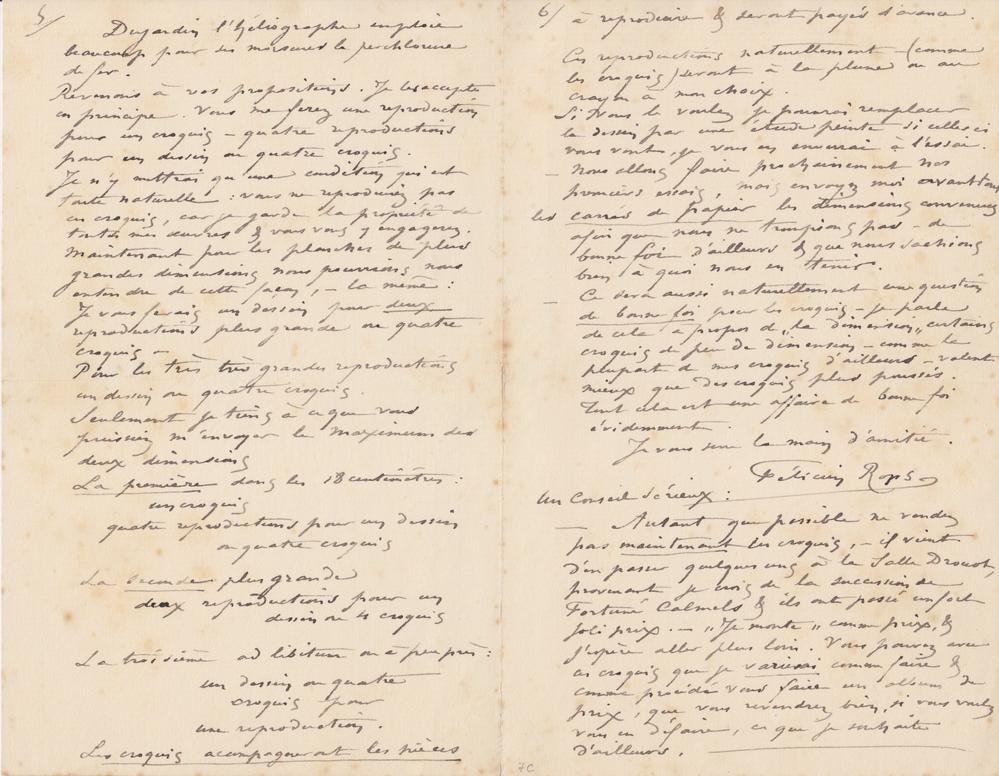 5/
Dujardin l'héliographe emploie
beaucoup pour ses morsures le perchlorure
de fer.
Revenons à vos propositions. Je les accepte
en principe. Vous me ferez une reproduction
pour un croquis – quatre reproductions
pour un dessin ou quatre croquis.
Je n'y mettrais qu'une condition qui est
toute naturelle : vous ne reproduirez pas
ces croquis, car je garde la propriété de
toutes mes œuvres & vous vous y engagerez.
Maintenant pour les planches de plus
grandes dimensions nous pourrions nous
entendre de cette façon, – la même :
Je vous ferais un dessin pour deux
reproductions plus grande ou quatre
croquis –
Pour les très très grandes reproductions
un dessin ou quatre croquis.
Seulement je tiens à ce que vous
puissiez m'envoyer le maximum des
deux dimensions
La première dans les 18 centimètres :
un croquis
quatre reproductions pour un dessin
ou quatre croquis
La seconde plus grande
deux reproductions pour un
dessin ou 4 croquis
La troisième ad libitum ou à peu près :
un dessin ou quatre
croquis pour
une reproduction.
Les croquis acompagneront les pièces
6/
à reproduire & seront payés d'avance.
Ces reproductions naturellement – (comme
les croquis) seront à la plume ou au
crayon à mon choix.
Si vous le voulez je pourrai remplacer
le dessin par une étude peinte si celles ci
vous vont, je vous en enverrai à l'essai.
– Nous allons faire prochainement nos
premiers essais, mais envoyez moi avant tout
les carrés de papier les dimensions convenues
afin que nous ne trompions pas – de
bonne foi d'ailleurs & que nous sachions
bien à quoi nous en tenir.
– Ce sera aussi naturellement une question
de bonne foi pour les croquis – je parle
de cela à propos de „la dimension„ certains
croquis de peu de dimension – comme la
plupart de mes croquis d'ailleurs – valent
mieux que des croquis plus poussés.
Tout cela est une affaire de bonne foi
évidemment.
Je vous serre la main d'amitié.
Félicien Rops
Un Conseil sérieux :
– Autant que possible ne vendez
pas maintenant les croquis, – il vient
d'en passer quelques uns à la Salle Drouot,
provenant je crois de la succession de
Fortuné Calmels & ils ont passé un fort
joli prix. – „Je monte„ comme prix, &
j'espère aller plus loin. Vous pouvez avec
ces croquis que je varierai comme faire &
comme procédé vous faire un album de
prix, que vous revendrez bien, si vous voulez
vous en défaire, ce que je souhaite
d'ailleurs.
7C